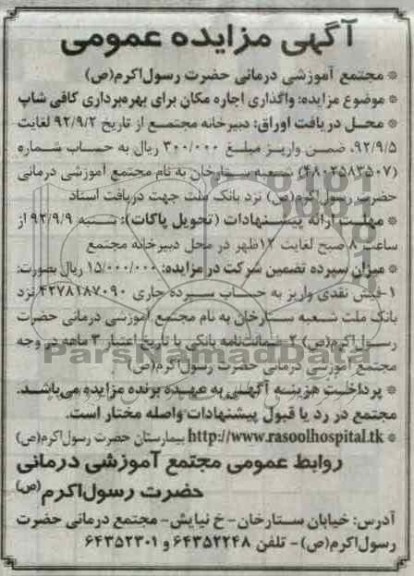 آگهی مزایده عمومی
* مجتمع آموزشی درمانی حضرت رسول‌اکرم(ص)
* موضوع مزایده: واگذاری اجاره مکان برای بهره‌برداری کافی شاپ
* محل دریافت اوراق: دبیرخانه مجتمع از تاریخ ۹۲/۹/۲ لغایت
۹۲/۹/۵، ضمن واریز مبلغ ۳۰۰/۰۰۰ ریال به حساب شماره
(۴۸۰۲۵۸۳۵۰۷) شعبه ستارخان به نام مجتمع آموزشی درمانی
حضرت رسول‌اکرم(ص) نزد بانک ملت جهت دریافت اسناد
* مهلت ارائه پیشنهادات (تحویل پاکات): شنبه ۹۲/۹/۹ از
ساعت ۸ صبح لغایت ۱۲ظهر در محل دبیرخانه مجتمع
* میزان سپرده تضمین شرکت در مزایده: ۱۵/۰۰۰/۰۰۰ ریال بصورت:
۱-فیش نقدی واریز به حساب سپرده جاری ۴۲۷۸۱۸۷۰۹۰ نزد
بانک ملت شعبه ستارخان به نام مجتمع آموزشی درمانی حضرت
رسول‌اکرم(ص) ۲-ضمانت‌نامه بانکی با تاریخ اعتبار ۳ ماهه در وجه
مجتمع آموزشی درمانی حضرت رسول‌اکرم(ص)
* پرداخت هزینه آگهی به عهده برنده مزایده می‌باشد.
مجتمع در رد یا قبول پیشنهادات واصله مختار است.
* http://www.rasoolhospital.tk بیمارستان حضرت رسول‌اکرم(ص)
روابط عمومی مجتمع آموزشی درمانی
حضرت رسول‌اکرم(ص)
آدرس: خیابان ستارخان- خ نیایش- مجتمع درمانی حضرت
رسول‌اکرم(ص)- تلفن ۶۴۳۵۲۲۴۸ و ۶۴۳۵۲۳۰۱
ParsNamadData